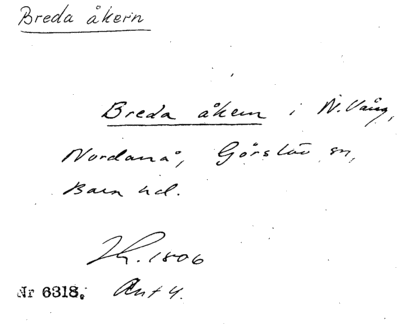 Breda åkern
Breda åkern i N. Vång,
Nordanå, Görslöv sn,
Bara hd.
Lk. 1806
Nr 6318. Akt 4.